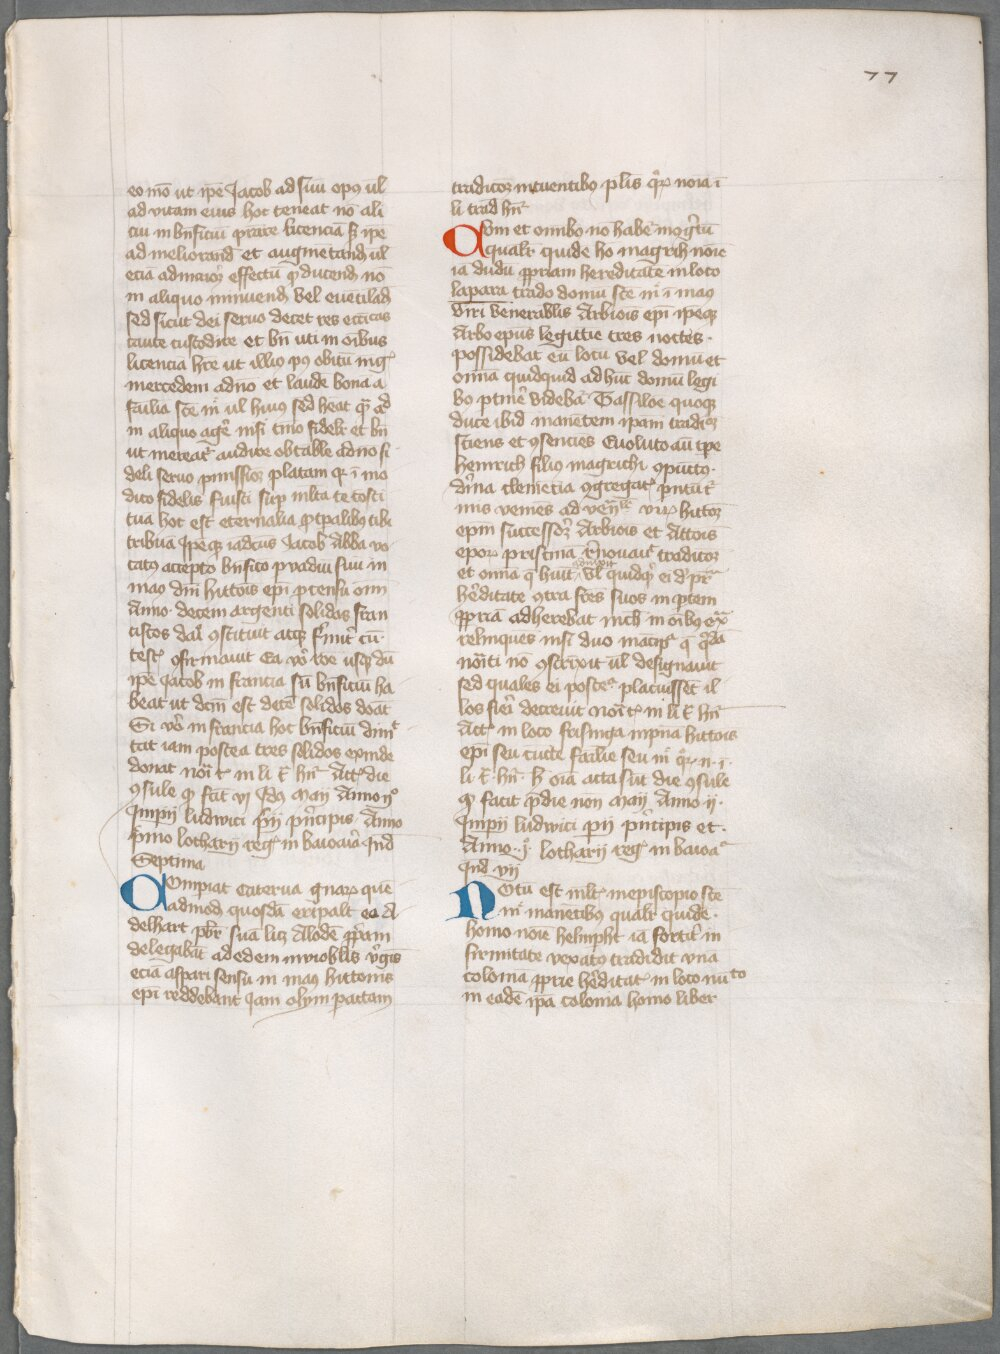 77
eo mō ut ip̄e Jacob ad suū opꝯ ul̄
ad vitam eius hoc teneat nō ali
cui in bn̄ficiū p̄stare licenciā sꝫ ip̄e
ad meliorand̄ et augmētand̄ ul̄
eciā ad maioꝝ effectū ꝓducend̄ nō
in aliquo minuend̄ vel euētiland̄
sed sicut dei seruo decet res ecc̄icas
caute custodire et bn̄ uti in oībus
licenciā hr̄e ut illiꝯ pꝯ obitū
mercedem a dn̄o et laude bona a
familia sc̄e mͥ ul̄ huiꝯ sed heat
in aliquo agr̄e nisi tm̄o fidelr̄ et bn̄
ut mereatᷣ audire obtabile a dn̄o fi
deli seruo ꝓmissioꝫ platam qꝛ ī mo
dico fidelis fuisti suꝑ ml̄ta te costi
tuā hoc est eternalia ꝓ tꝑalibꝯ tibi
tribuā Ip̄eqꝫ iād̄cus Jacob Abba vo
catꝯ accepto bn̄fico ꝑ vadiū suū in
manꝯ dn̄i hittonis epī ꝓ censu om̄i
Anno decem argenti solidos fran
ciscos dal̄ ꝯstituit atqꝫ f̄mit̄ cū
testꝭ ꝯfirmauit Ea vo᷑ rōe usqꝫ dū
ip̄e Jacob in francia sū bn̄ficiū ha
beat ut dc̄m est decē solidos doāt
Si vo᷑ in francia hoc bn̄ficiū dimͭ
tat iam postea tres solidos exinde
donat noīa tͬ in li tͬ hn̄ᷓ Actᷓ die
ꝯsule qͩ fc̄it vj Idꝯ Maij Anno ijͦ
Imp̄ij ludwici p̄ij pͥncipis Anno
pͥmo lotharij regꝭ in baioaͥa Ind̄
Septima
Compiat caterua gnarꝯ quē
admod̄ quosdā eripalt ea A
delhart pb̄r suā liꝫ Alodē ꝓp̄am
delegabāt ad edem inuiolibis vͥgis
eciā aspari sensu in manꝯ hittonis
epī reddebant Jam olym pactam
tradicoꝫ intuentibꝯ plīs qͦꝝ noīa ī
li trad̄ hn̄ᷓ
Com et omībꝰ nō habē īcogᷓtū
qualr̄ quidē ho magrih noīe
iā dudū ꝓpriam hereditatē in loco
lapara trado domū sc̄e mͥ ī manꝯ
viri venerabilis Arbiois epī ip̄eqꝫ
Arbo epūs legittīe tres noctes
possidebat eū locū vel domū et
om̄ia quidquid ad hūc domū legi
bꝯ ꝑtinēr videbāt Tassiloe quoqꝫ
duce ibid̄ manētem ip̄am tradicoꝫ
sciens et ꝯsenciēs Euoluto aūt tꝑe
heinrich filiꝯ magrichi ꝯpūcto
diīna clemēcia ꝯgregatᷓ pn̄tūͭ
mis veniēs ad ven̄ilē virꝫ hittoꝫ
epm̄ successoꝝ Arbiois et Attois
epoꝝ pristinā r̄nouauit tradicoꝫ
et om̄ia q̄ huit vl̄ quidqͩ ei d̄ pr̄ᷓ
conq̄siuit
he᷑ditate ꝯtra frēs suos in ꝑtem
ꝓpriā adherebat nich̄ in oībꝯ exᷓ
relinq̄es nisi duo mācipᷓ q̄ qͦdā
noīti nō ꝯscrixit ul̄ designauit
sed quales ei posteᷓ placuissēt il
los fieri decreuit Noīa tᷓ in li tͬ hn̄ᷓ
Actᷓ in loco frisinga in pn̄ia hittois
epī seu cūcte fāilie seu mͥ qͦꝝ n. ī
li tͬ hn̄ᷓ hꝫ oīa acta sūt die ꝯsule
qͩ facit pͥdie non̄ Maij Anno ij
Imp̄ij ludwici pij pͥncipis et
Anno j lotharij regꝭ in baioaͬ
Ind̄ vij
Notū est ml̄tꝭ in episcopio sc̄e
mͥ manētibꝯ qualr̄ quidē
homo noīe helmpht iā fortit̄ in
firmitate vexatꝯ tradidit vnā
coloniā ꝓprie he᷑ditatꝭ in loco nūcto
in eadē ip̄a colonia homo liber